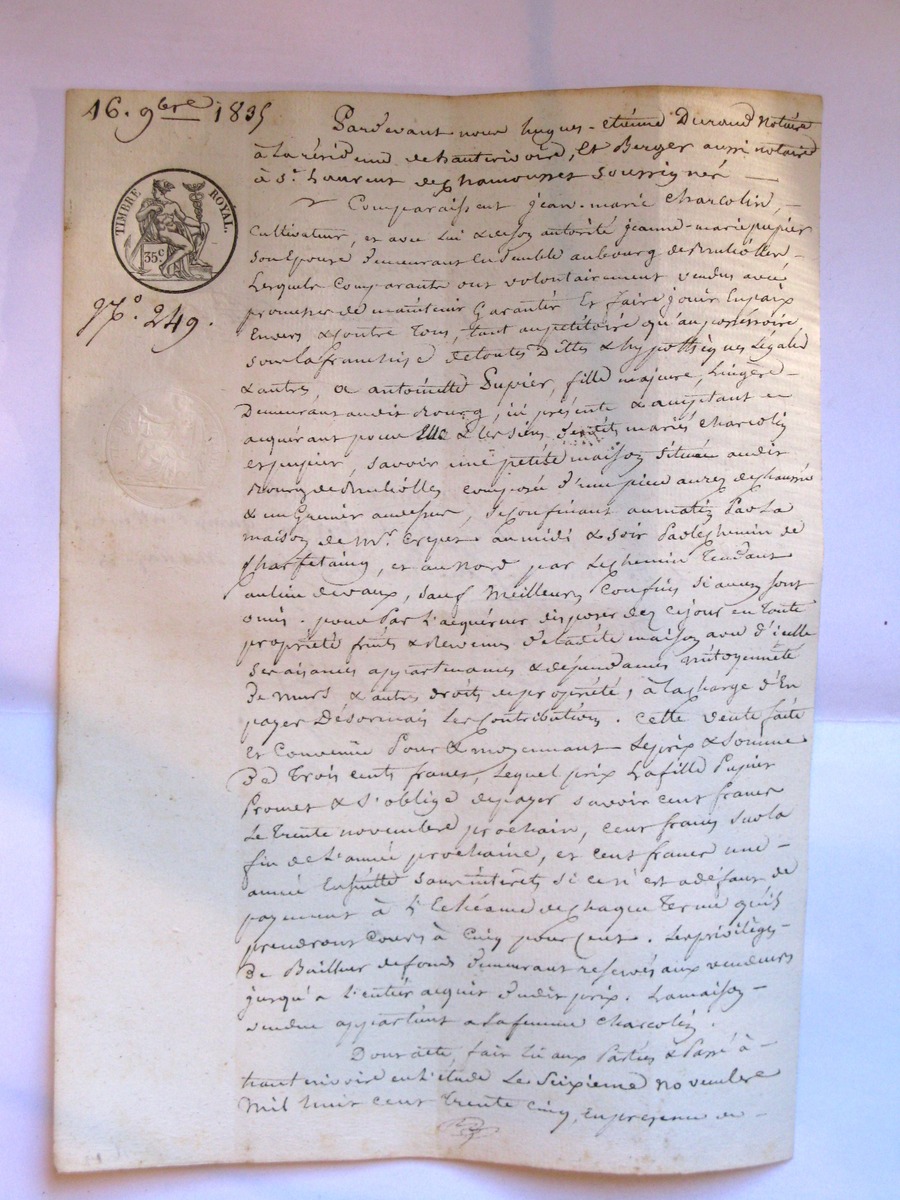 16. 9bre 1835
Pardevant nous hugues-etienne Durand Notaire
à La résidence de hauterivoire, Et Berger aussi notaire
à St. Laurent de chamousset soussignés —
Comparaissent jean-marie charcolin, —
cultivateur, et avec lui & de son autorité jeanne-marie pupier
son Epouse demeurant Ensemble au bourg de Brulliolles
TIMBRE ROYAL.
35c
Lesquels Comparants ont volontairement vendus avec
promesse de maintenir Garantir Et faire jouir En paix
No. 249.
Envers & contre Tous, tant au petitoire qu'au possessoire
sous la franchise de toutes Dettes & hypothèques Legales
& autres, a antoinette Pupier, fille majeure, Lingère —
Demeurant audit Bourg, ici présente & acceptant en
acquérant pour Elle & les siens desdits mariés charcolin
et pupier, savoir une petite maison située audit
Bourg de Brullioles composée d'une piece au rez de chaussée
& un Grenier au dessus, se confinant au matin Par La
maison de Mr. Crepet au midi & soir Par le chemin de
et au Nord par Le chemin Tendant
au lieu de vaux, sauf Meilleurs Confins si aucuns sont
omis. pour Par L'acquéreur disposer dez ce jour en Toute
propriété fruits & Revenus de ladite maison avec d'icelle
ses aisances appartenances & dépendances mitoyenneté
De murs & autres droits de propriété, à la charge d'En
payer Désormais les Contributions. Cette vente faite
Et Convenue Pour & moyennant Le prix & somme
De Trois cents francs, Lequel prix La fille Pupier
Promet & s'oblige de payer savoir cent francs
Le Trente novembre prochain, cent francs sur la
fin de L'année prochaine, et cent francs une —
année Ensuitte sans interets si ce n'est a défaut de
payement à L'Echéance de chaque Terme qu'ils
prendront cours à Cinq pour Cent. Les privilèges —
De Bailleur de fonds demeurant reservés aux vendeurs
jusqu'a L'entier acquit dudit prix. La maison —
vendue appartient a La femme Charcolin.
Dont acte, fait Lu aux Parties & Passé à —
hauterivoire en L'étude Le Seizieme novembre
Mil huit cent Trente Cinq, en presence de —